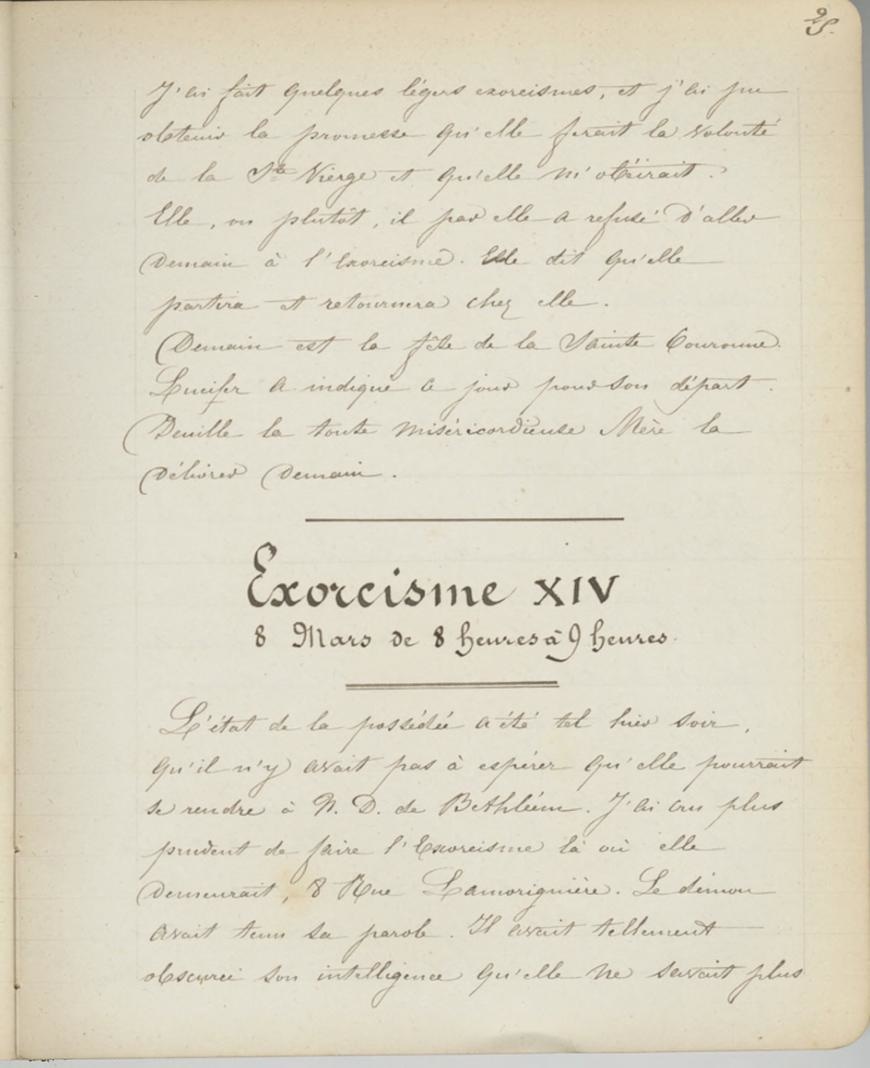 25.
J'ai fait quelques légers exorcismes, et j'ai pu
obtenir la promesse qu'elle ferait la volonté
de la Ste Vierge et qu'elle m'obéirait.
Elle, ou plutôt, il par elle a refusé d'aller
Demain à l'Exorcisme. Elle dit qu'elle
partira et retournera chez elle.
Demain est la fête de la Sainte Couronne.
Lucifer a indiqué ce jour pour son départ.
Deuille la toute miséricordieuse Mère la
Délivrer Demain.
Exorcisme XIV
8 Mars de 8 heures à 9 heures.
L'état de la possédée a été tel hier soir,
qu'il n'y avait pas à espérer qu'elle pourrait
se rendre à N. D. de Bethléem. J'ai cru plus
prudent de faire l'Exorcisme là où elle
Demeurait, 8 Rue Lamorignière. Le démon
avait tenu sa parole. Il avait tellement
obscurci son intelligence qu'elle ne savait plus